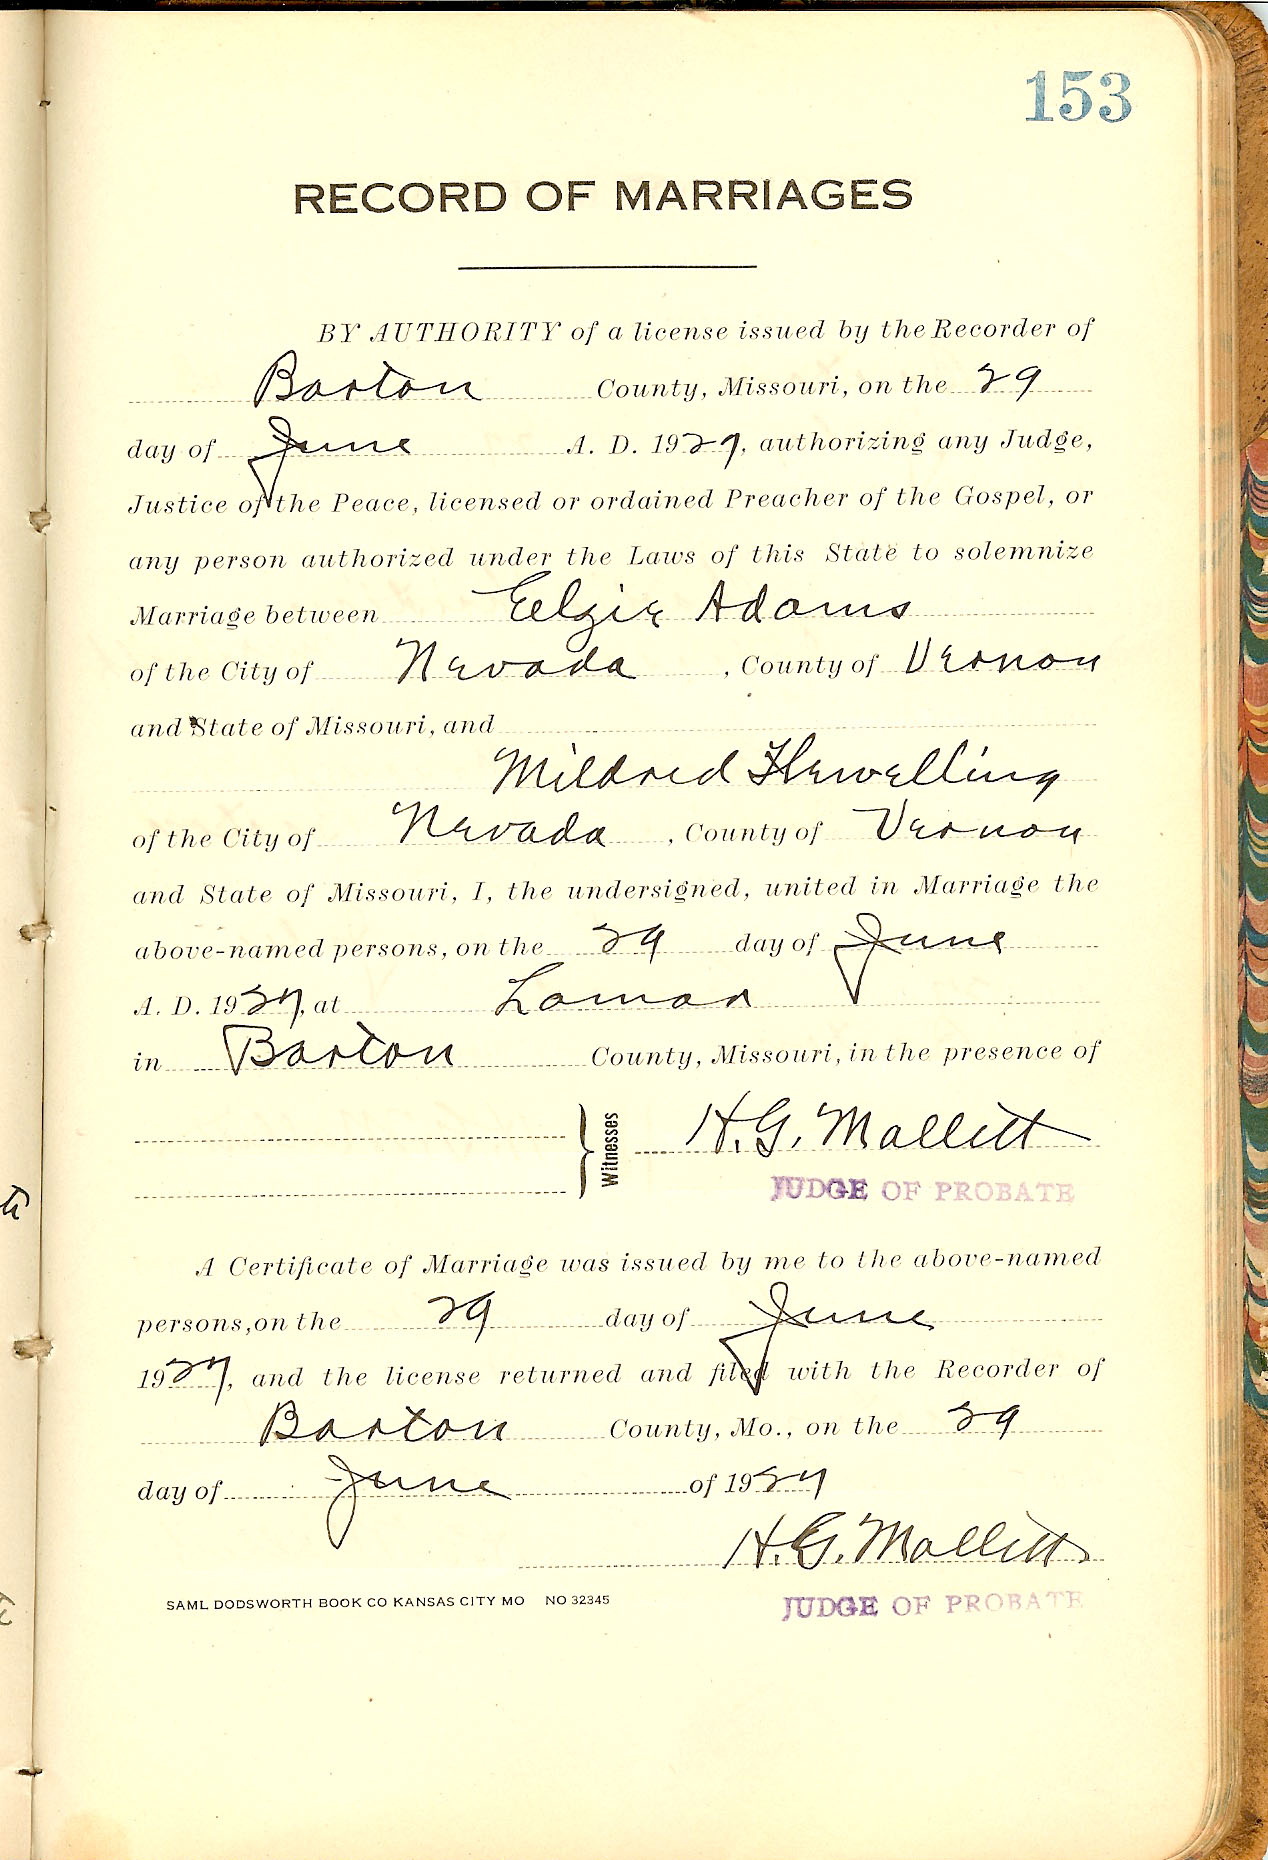 153
RECORD OF MARRIAGES
BY AUTHORITY of a license issued by the Recorder of
Barton County, Missouri, on the 29
day of June A. D. 1927, authorizing any Judge,
Justice of the Peace, licensed or ordained Preacher of the Gospel, or
any person authorized under the Laws of this State to solemnize
Marriage between Elzie Adams
of the City of Nevada, County of Vernon
and State of Missouri, and
Mildred Flewelling
of the City of Nevada, County of Vernon
and State of Missouri, I, the undersigned, united in Marriage the
above-named persons, on the 29 day of June
A. D. 1927, at Lamar
in Barton County, Missouri, in the presence of
Witnesses H. G. Mallett
JUDGE OF PROBATE
A Certificate of Marriage was issued by me to the above-named
persons, on the 29 day of June
1927, and the license returned and filed with the Recorder of
Barton County, Mo., on the 29
day of June of 1927
H. G. Mallett
SAML DODSWORTH BOOK CO KANSAS CITY MO NO 32345
JUDGE OF PROBATE